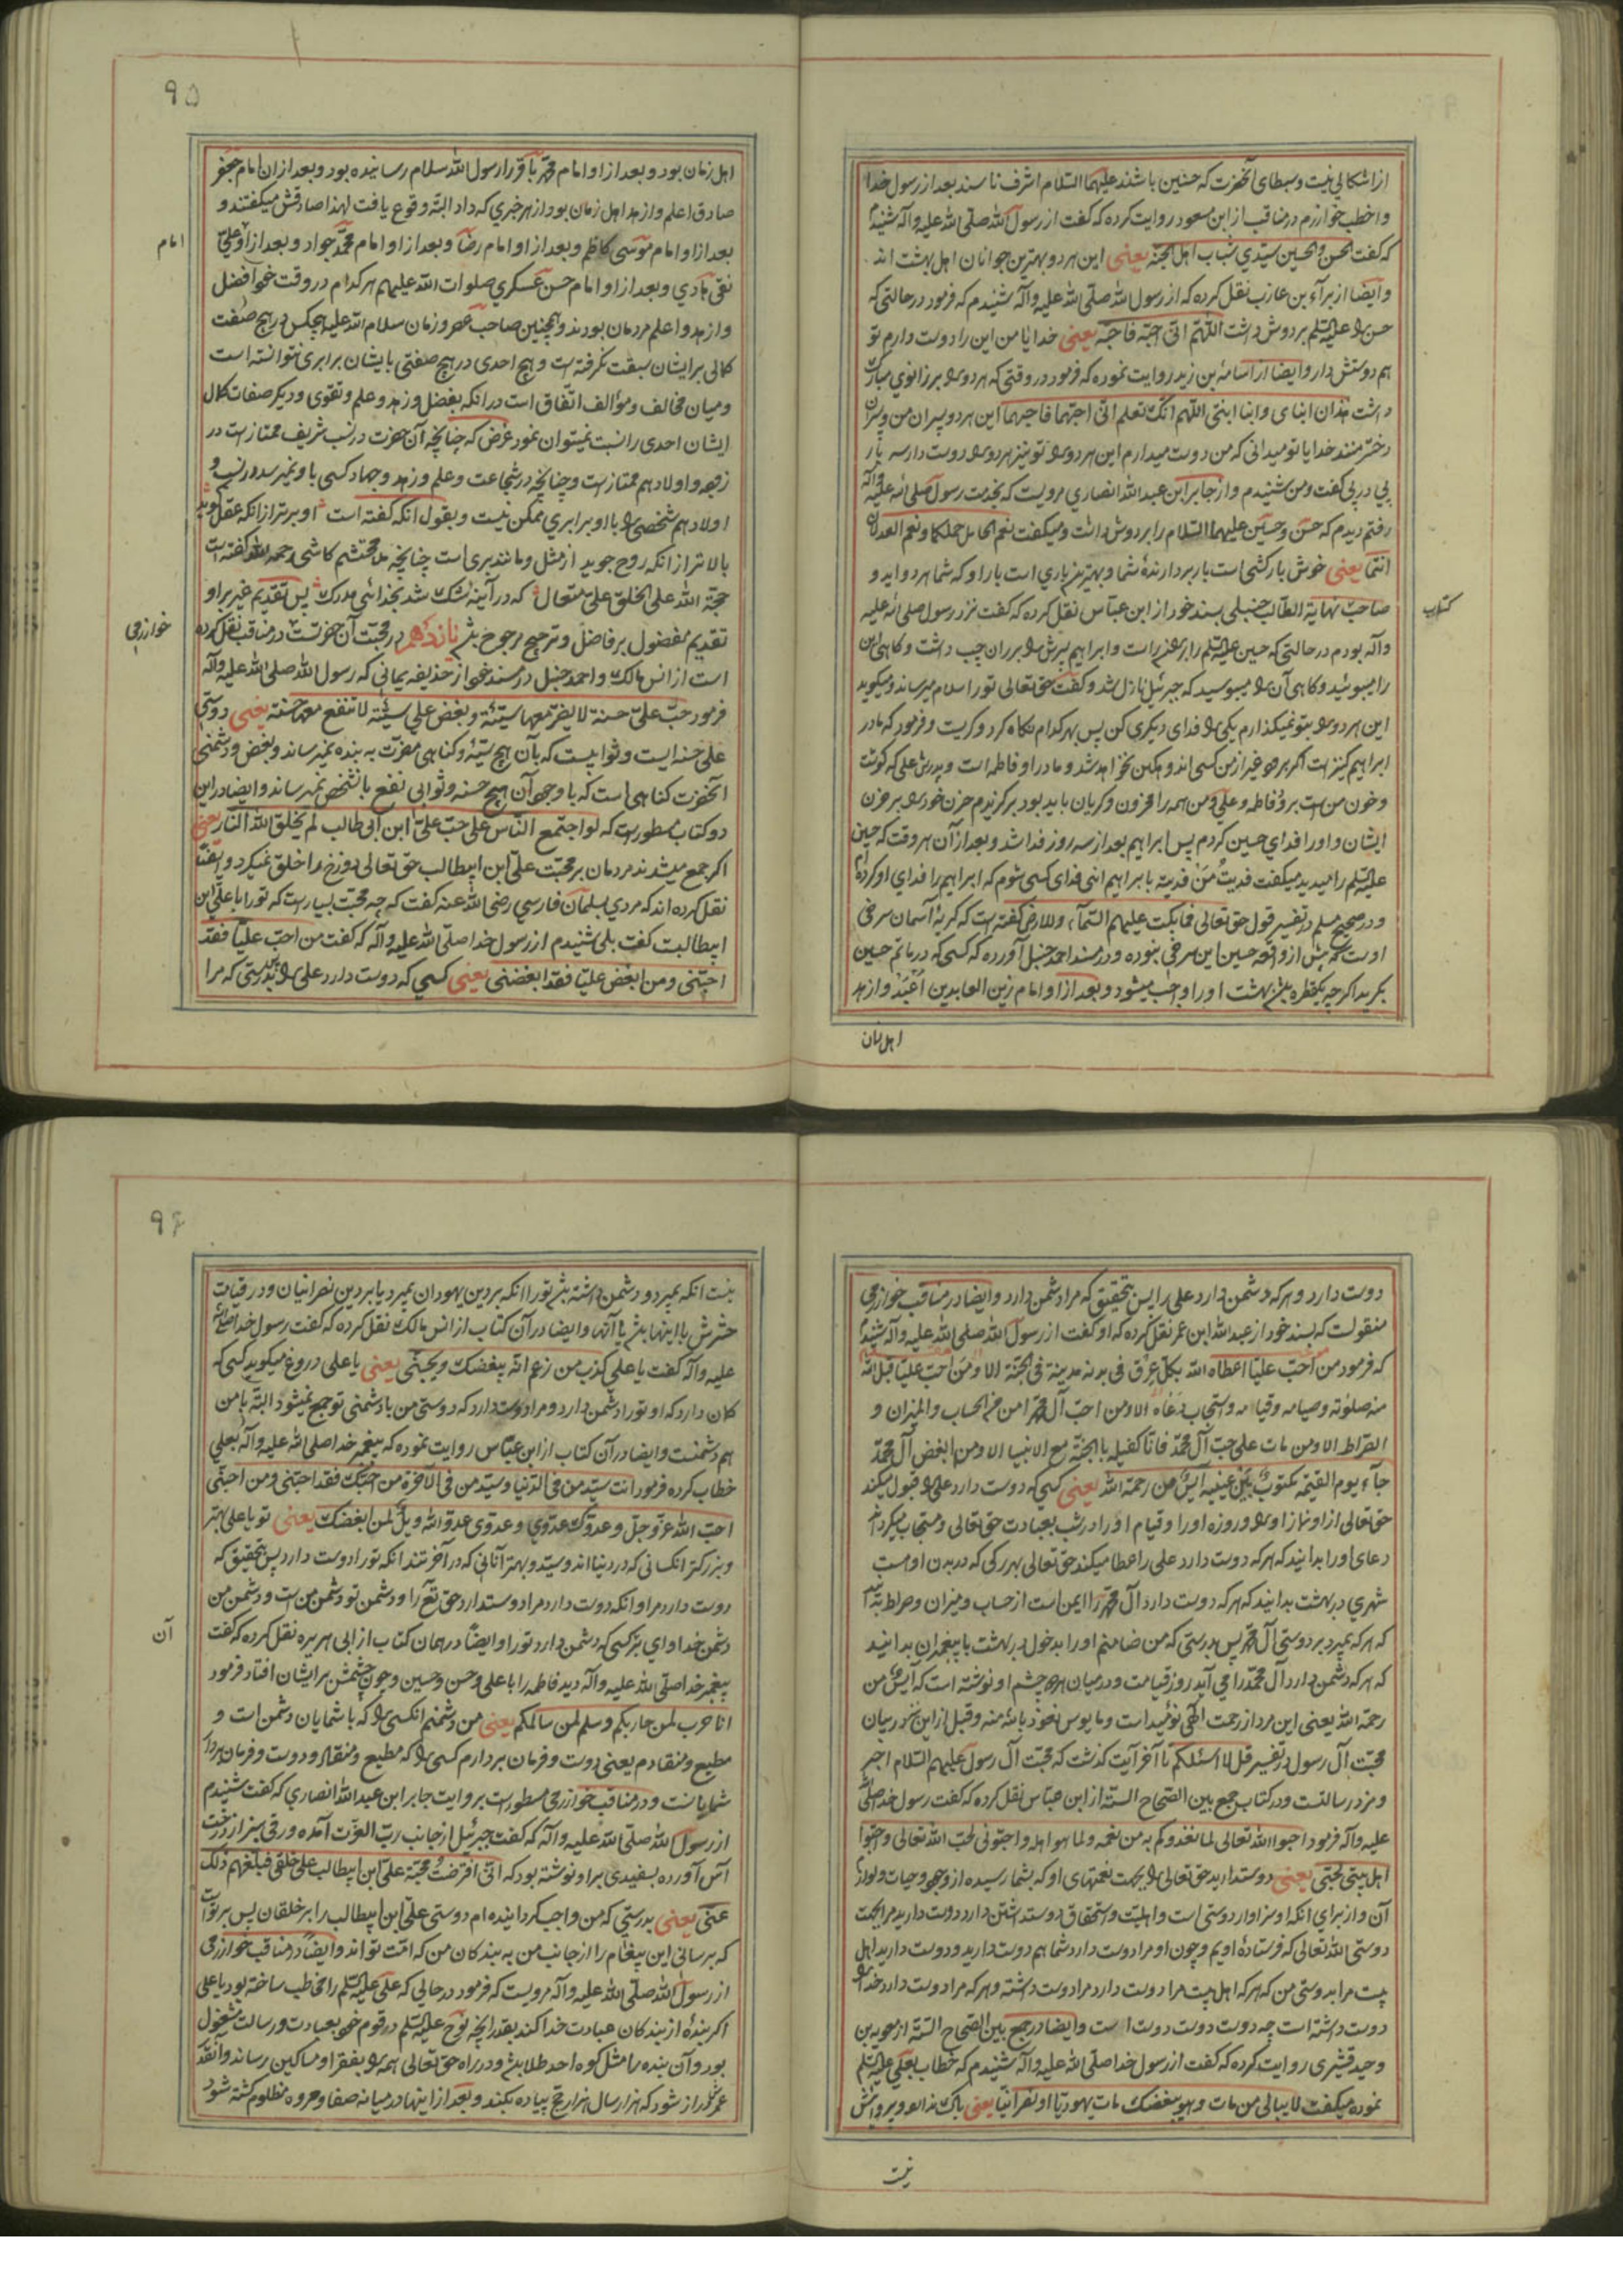 از اشکالی نیست و سبطای آنحضرت که حسنین باشند علیهما السلام اشرف ناسند بعد از رسول خدا
و اخطب خوارزم در مناقب از ابن مسعود روایت کرده که گفت از رسول الله صلی الله علیه و آله شنیدم
که گفت الحسن و الحسین سیدی شباب اهل الجنه یعنی این هر دو بهترین جوانان اهل بهشت اند
و ایضا از براء بن عازب نقل کرده که از رسول الله صلی الله علیه و آله شنیدم که فرمود در حالتی که
حسن را علیه السلم بر دوش داشت اللهم انی احبه فاحبه یعنی خدایا من این را دوست دارم تو
هم دوستش دار و ایضا از اسامة بن زید روایت نموده که فرمود در وقتی که هر دو را بر زانوی مبارک
داشت هذان ابنای و ابنا ابنتی اللهم انک تعلم انی احبهما فاحبهما این هر دو پسران من و پسران
دختر منند خدایا تو میدانی که من دوست میدارم این هر دو را تو نیز هر دو را دوست دار سه بار
پی در پی گفت و من شنیدم و از جابر ابن عبد الله انصاری مرویست که بخدمت رسول صلی الله علیه و آله
رفتم دیدم که حسن و حسین علیهما السلام را بر دوش داشت و میگفت نعم الحامل حملکما و نعم العدلان
انتما یعنی خوش بارکشی است باربردارنده شما و بهترین باری است بار او که شما هر دواید و
صاحب نهایة الطالب حنبلی بسند خود از ابن عباس نقل کرده که گفت نزد رسول صلی الله علیه
کتاب
و آله بودم در حالتی که حسین علیه السلم را بر ران راست و ابراهیم پسرش را بر ران چپ داشت و گاهی این
را میبوسید و گاهی آن را میبوسید که جبرئیل نازل شد و گفت حق تعالی تو را سلام میرساند و میگوید
این هر دو را بتو نمیگذارم یکی را فدای دیگری کن پس بهر کدام نگاه کرد و گریست و فرمود که مادر
ابراهیم کنیز است اگر بمیرد غیر از من کسی اندوهگین نخواهد شد و مادر او فاطمه است و پدرش علی که گوشت
و خون من است برو فاطمه و علی و من همه را محزون و گریان باید بود برگزیدم حزن خود را بر حزن
ایشان و او را فدای حسین کردم پس ابراهیم بعد از سه روز فدا شد و بعد از آن هر وقت که حسین
علیه السلم را میدید میگفت فدیت من فدیته بابراهیم انی فدای کسی شوم که ابراهیم را فدای او کرده ام
و در صحیح مسلم در تفسیر قول حق تعالی فما بکت علیهم السمآء و الارض گفته است که گریه آسمان سرخی
اوست که پیش از واقعه حسین این سرخی نبوده و در مسند احمد حنبل آورده که کسی که در ماتم حسین
بگرید اگر چه یکقطره باشد بهشت او را واجب میشود و بعد از او امام زین العابدین اعبد و ازهد
اهل زمان
۹۵
اهل زمان بود و بعد از او امام محمد باقر را رسول الله سلام رسانیده بود و بعد از ان امام جعفر
صادق اعلم و ازهد اهل زمان بود از هر خبری که داد البته وقوع یافت لهذا صادقش میگفتند و
بعد از او امام موسی کاظم و بعد از او امام رضا و بعد از او امام محمد جواد و بعد از او علی
امام
نقی هادی و بعد از او امام حسن عسکری صلوات الله علیهم هر کدام در وقت خود افضل
و ازهد و اعلم مردمان بودند و همچنین صاحب عصر و زمان سلام الله علیه هیچکس در هیچ صفت
کمالی بر ایشان سبقت نگرفته است و هیچ احدی در هیچ صفتی بایشان برابری نتوانسته است
و میان مخالف و مؤالف اتفاق است در انکه بفضل و زهد و علم و تقوی و دیگر صفات کمال
ایشان احدی را نسبت نمیتوان نمود غرض که چنانچه آن حضرت در نسب شریف ممتاز است در
زوجه و اولاد هم ممتاز است و چنانچه در شجاعت و علم و زهد و جهاد کسی باو نمیرسد در نسب و
اولاد هم شخصی را با او برابری ممکن نیست و بقول انکه گفته است او برتر از انکه عقل جوید
بالاتر از انکه روح جوید از مثل و مانند بری است چنانچه ملا محتشم کاشی رحمه الله گفته است
حجة الله علی الخلق علی متعال که در آینه شک شد بخدائی مدرک پس تقدیم غیر بر او
تقدیم مفضول بر فاضل و ترجیح مرجوح باشد پانزدهم در محبت آن حضرتست در مناقب نقل کرده
خوارزمی
است از انس مالک و احمد حنبل در مسند خود از حذیفه یمانی که رسول الله صلی الله علیه و آله
فرمود حب علی حسنة لا یضر معها سیئة و بغض علی سیئة لا تنفع معها حسنة یعنی دوستی
علی حسنه ایست و ثوابیست که بآن هیچ سیئه و گناهی مضرت به بنده نمیرساند و بغض و دشمنی
آنحضرت گناهی است که با وجود آن هیچ حسنه و ثوابی نفع بانشخص نمیرساند و ایضا در این
دو کتاب مسطور است که لو اجتمع الناس علی حب علی ابن ابی طالب لم یخلق الله النار یعنی
اگر جمع میشدند مردمان بر محبت علی ابن ابیطالب حق تعالی دوزخ را خلق نمیکرد و ایضا
نقل کرده اند که مردی بسلمان فارسی رضی الله عنه گفت که چه محبت بسیار است که تو را با علی ابن
ابیطالبست گفت بلی شنیدم از رسول خدا صلی الله علیه و آله که گفت من احب علیا فقد
احبنی و من ابغض علیا فقد ابغضنی یعنی کسی که دوست دارد علی را بدرستی که مرا
دوست دارد و هر که دشمن دارد علی را پس بتحقیق که مرا دشمن دارد و ایضا در مناقب خوارزمی
منقولست که بسند خود از عبد الله ابن عمر نقل کرده که او گفت از رسول الله صلی الله علیه و آله شنیدم
که فرمود من احب علیا اعطاه الله بکل عرق فی بدنه مدینة فی الجنة الا و من احب علیا قبل الله
منه صلوته و صیامه و قیامه و استجاب دعاه الا و من احب آل محمد امن من الحساب و المیزان و
الصراط الا و من مات علی حب آل محمد فانا کفیله بالجنة مع الانبیا الا و من ابغض آل محمد
جاء یوم القیمة مکتوب بین عینیه آیس من رحمة الله یعنی کسی که دوست دارد علی را قبول میکند
حق تعالی از او نماز او را و روزه او را و قیام او را در شب بعبادت حق تعالی و مستجاب میگرداند
دعای او را بدانید که هر که دوست دارد علی را عطا میکند حق تعالی بهر رگی که در بدن اوست
شهری در بهشت بدانید که هر که دوست دارد آل محمد را ایمن است از حساب و میزان و صراط بدانید
که هر که بمیرد بر دوستی آل محمد پس بدرستی که من ضامنم او را بدخول در بهشت با پیغمبران بدانید
که هر که دشمن دارد آل محمد را می آید روز قیامت و در میان هر دو چشم او نوشته است که آیس من
رحمة الله یعنی این مرد از رحمت الهی نومید است و مایوس نعوذ بالله منه و قبل از این نیز در بیان
محبت آل رسول در تفسیر قل لا اسئلکم تا آخر آیت گذشت که محبت آل رسول علیهم السلام اجر
و مزد رسالتست و در کتاب جمع بین الصحاح الستة از ابن عباس نقل کرده که گفت رسول خدا صلی الله
علیه و آله فرمود احبوا الله تعالی لما یغذوکم به من نعمه و لما هو اهله و احبونی لحب الله تعالی و احبوا
اهل بیتی لحبی یعنی دوستدارید حق تعالی را بجهت نعمتهای او که بشما رسیده از وجود و حیات و لوازم
آن و از برای انکه او سزاوار دوستی است و اهلیت و استحقاق دوستداشتن دارد و دوست دارید مرا بجهت
دوستی الله تعالی که فرستادهٔ اویم و چون او مرا دوست دارد شما هم دوست دارید و دوست دارید اهل
بیت مرا بدوستی من که هر که اهل بیت مرا دوست دارد مرا دوست داشته و هر که مرا دوست دارد خدا را
دوست داشته است چه دوست دوست دوست است و ایضا در جمع بین الصحاح الستة از معویه بن
وحید قشیری روایت کرده که گفت از رسول خدا صلی الله علیه و آله شنیدم که خطاب بعلی علیه السلم
نموده میگفت لا یبالی من مات و هو یبغضک مات یهودیا او نصرانیا یعنی باک ندارد و پرواش
نیست
۹۶
نیست انکه بمیرد و دشمن داشته باشد تو را انکه بر دین یهودان بمیرد یا بر دین نصرانیان و در قیامت
حشرش با اینها باشد یا آنها و ایضا در آن کتاب از انس مالک نقل کرده که گفت رسول خدا صلی الله
علیه و آله گفت یا علی کذب من زعم انه یبغضک و یحبنی یعنی یا علی دروغ میگوید کسی که
گمان دارد که او تو را دشمن دارد و مرا دوست دارد که دوستی من با دشمنی تو جمع نمیشود البته با من
هم دشمنست و ایضا در آن کتاب از ابن عباس روایت نموده که پیغمبر خدا صلی الله علیه و آله بعلی
خطاب کرده فرمود انت سید من فی الدنیا و سید من فی الآخرة من احبک فقد احبنی و من احبنی
احب الله عز و جل و عدوک عدوی و عدوی عدو الله ویل لمن ابغضک یعنی تو یا علی بهتر
و بزرگتر انکسانی که در دنیااند و سید و بهتر آنانی که در آخرتند انکه تو را دوست دارد پس بتحقیق که
دوست دارد مرا و انکه دوست دارد مرا دوستدارد حق تع را و دشمن تو دشمن من است و دشمن من
دشمن خدا و ای بر کسی که دشمن دارد تو را و ایضا در همان کتاب از ابی هریره نقل کرده که گفت
آن
پیغمبر خدا صلی الله علیه و آله دید فاطمه را با علی و حسن و حسین و چون چشمش بر ایشان افتاد فرمود
انا حرب لمن حاربکم و سلم لمن سالمکم یعنی من دشمنم انکسی را که با شمایان دشمن است و
مطیع و منقادم یعنی دوست و فرمان بردارم کسی را که مطیع و منقاد و دوست و فرمان بردار
شمایانست و در مناقب خوارزمی مسطور است بروایت جابر ابن عبد الله انصاری که گفت شنیدم
از رسول الله صلی الله علیه و آله که گفت جبرئیل از جانب رب العزت آمده ورقی سبز از درخت
آس آورده بسفیدی بر او نوشته بود که انی افترضت محبة علی ابن ابیطالب علی خلقی فبلغهم ذلک
عنی یعنی بدرستی که من واجب گردانیده ام دوستی علی ابن ابیطالب را بر خلقان پس بر تو است
که برسانی این پیغام را از جانب من به بندگان من که امت تواند و ایضا در مناقب خوارزمی
از رسول الله صلی الله علیه و آله مرویست که فرمود در حالی که علی علیه السلم را مخاطب ساخته بود یا علی
اگر بندهٔ از بندگان عبادت خدا کند بقدر انچه نوح علیه السلم در قوم خود بعبادت و رسالت مشغول
بود و آن بنده را مثل کوه احد طلا باشد و در راه حق تعالی همه را بفقرا و مساکین رساند و آنقدر
عمرش دراز شود که هزار سال هزار حج پیاده بکند و بعد از اینها در میانه صفا و مروه مظلوم کشته شود